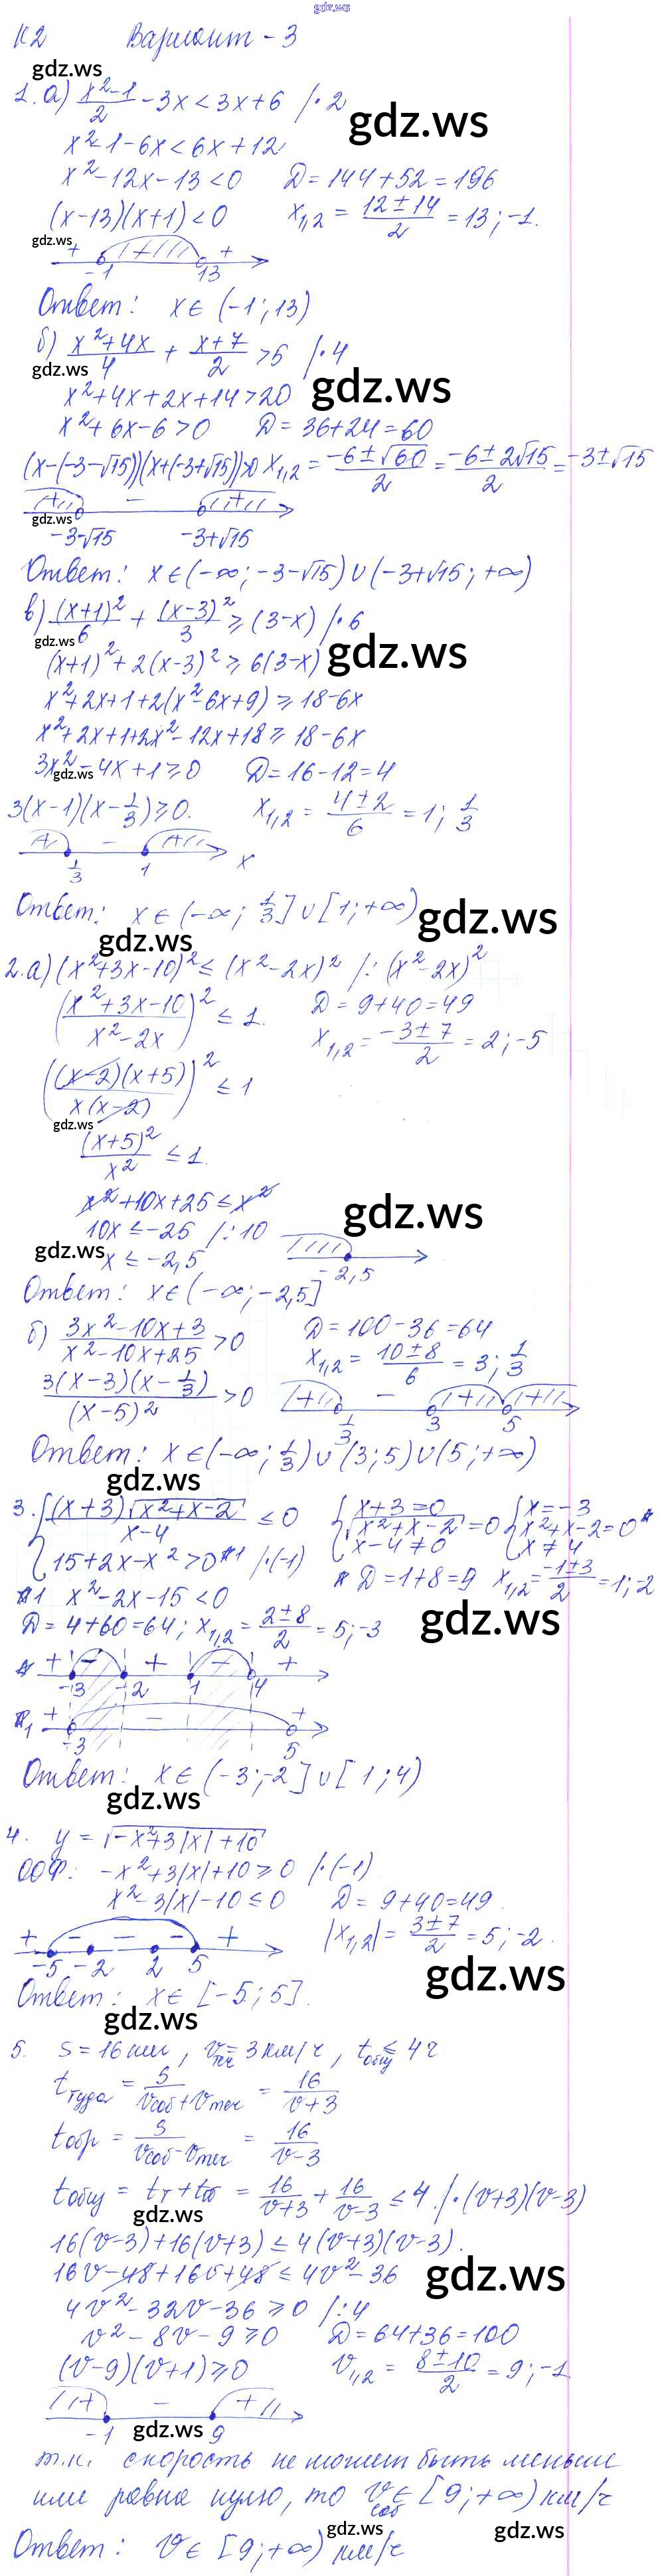 gdz.ws
К2 Вариант - 3
gdz.ws
1. а) (x²-1)/2 - 3x < 3x + 6 /·2
gdz.ws
x² - 1 - 6x < 6x + 12
x² - 12x - 13 < 0 Д = 144 + 52 = 196
(x-13)(x+1) < 0 x₁,₂ = (12±14)/2 = 13; -1.
gdz.ws
+ + -1 13
Ответ: x ∈ (-1; 13)
б) (x²+4x)/4 + (x+7)/2 > 5 /·4
gdz.ws gdz.ws
x² + 4x + 2x + 14 > 20
x² + 6x - 6 > 0 Д = 36 + 24 = 60
(x-(-3-√15))(x+(-3+√15))>0 x₁,₂ = (-6±√60)/2 = (-6±2√15)/2 = -3±√15
+ - +
gdz.ws
-3-√15 -3+√15
Ответ: x ∈ (-∞; -3-√15) ∪ (-3+√15; +∞)
в) (x+1)²/6 + (x-3)²/3 ≥ (3-x) /·6
gdz.ws gdz.ws
(x+1)² + 2(x-3)² ≥ 6(3-x)
x² + 2x + 1 + 2(x² - 6x + 9) ≥ 18 - 6x
x² + 2x + 1 + 2x² - 12x + 18 ≥ 18 - 6x
3x² - 4x + 1 ≥ 0 Д = 16 - 12 = 4
gdz.ws
3(x-1)(x-1/3) ≥ 0. x₁,₂ = (4±2)/6 = 1; 1/3
+ - +
1/3 1 x
Ответ: x ∈ (-∞; 1/3] ∪ [1; +∞)
gdz.ws
gdz.ws
2. а) (x²+3x-10)² ≤ (x²-2x)² /: (x²-2x)²
((x²+3x-10)/(x²-2x))² ≤ 1. Д = 9 + 40 = 49
x₁,₂ = (-3±7)/2 = 2; -5
((x-2)(x+5)/(x(x-2)))² ≤ 1
gdz.ws
(x+5)²/x² ≤ 1.
x² + 10x + 25 ≤ x²
gdz.ws
10x ≤ -25 /:10
gdz.ws
x ≤ -2,5
-2,5
Ответ: x ∈ (-∞; -2,5]
б) (3x²-10x+3)/(x²-10x+25) > 0 Д = 100 - 36 = 64
x₁,₂ = (10±8)/6 = 3; 1/3
3(x-3)(x-1/3)/(x-5)² > 0
+ - + +
1/3 3 5
Ответ: x ∈ (-∞; 1/3) ∪ (3; 5) ∪ (5; +∞)
gdz.ws
3. { (x+3)√(x²+x-2)/(x-4) ≤ 0 { x+3=0 { x=-3
√(x²+x-2) = 0 x²+x-2=0*
x-4≠0 x≠4
15 + 2x - x² > 0 *1 /·(-1)
* Д = 1+8 = 9 x₁,₂ = (-1±3)/2 = 1; -2
*1 x² - 2x - 15 < 0
gdz.ws
Д = 4 + 60 = 64; x₁,₂ = (2±8)/2 = 5; -3
* + - + - +
-3 -2 1 4
*1 + - +
-3 5
Ответ: x ∈ (-3; -2] ∪ [1; 4)
gdz.ws
4. y = √(-x²+3|x|+10)
ООФ: -x² + 3|x| + 10 ≥ 0 /·(-1)
x² - 3|x| - 10 ≤ 0 Д = 9 + 40 = 49.
|x₁,₂| = (3±7)/2 = 5; -2.
+ - - - +
-5 -2 2 5
gdz.ws
Ответ: x ∈ [-5; 5].
gdz.ws
5. S = 16 км, vтеч = 3 км/ч, tобщ ≤ 4 ч
tтуда = S/(vсоб+vтеч) = 16/(v+3)
tобр = S/(vсоб-vтеч) = 16/(v-3)
tобщ = tт + tоб = 16/(v+3) + 16/(v-3) ≤ 4 /·(v+3)(v-3)
gdz.ws
16(v-3) + 16(v+3) ≤ 4(v+3)(v-3).
16v - 48 + 16v + 48 ≤ 4v² - 36
gdz.ws
4v² - 32v - 36 ≥ 0 /:4
v² - 8v - 9 ≥ 0 Д = 64 + 36 = 100
(v-9)(v+1) ≥ 0 v₁,₂ = (8±10)/2 = 9; -1
+ - +
-1 9
gdz.ws
т.к. скорость не может быть меньше
или равна нулю, то vсоб ∈ [9; +∞) км/ч
gdz.ws gdz.ws
Ответ: v ∈ [9; +∞) км/ч